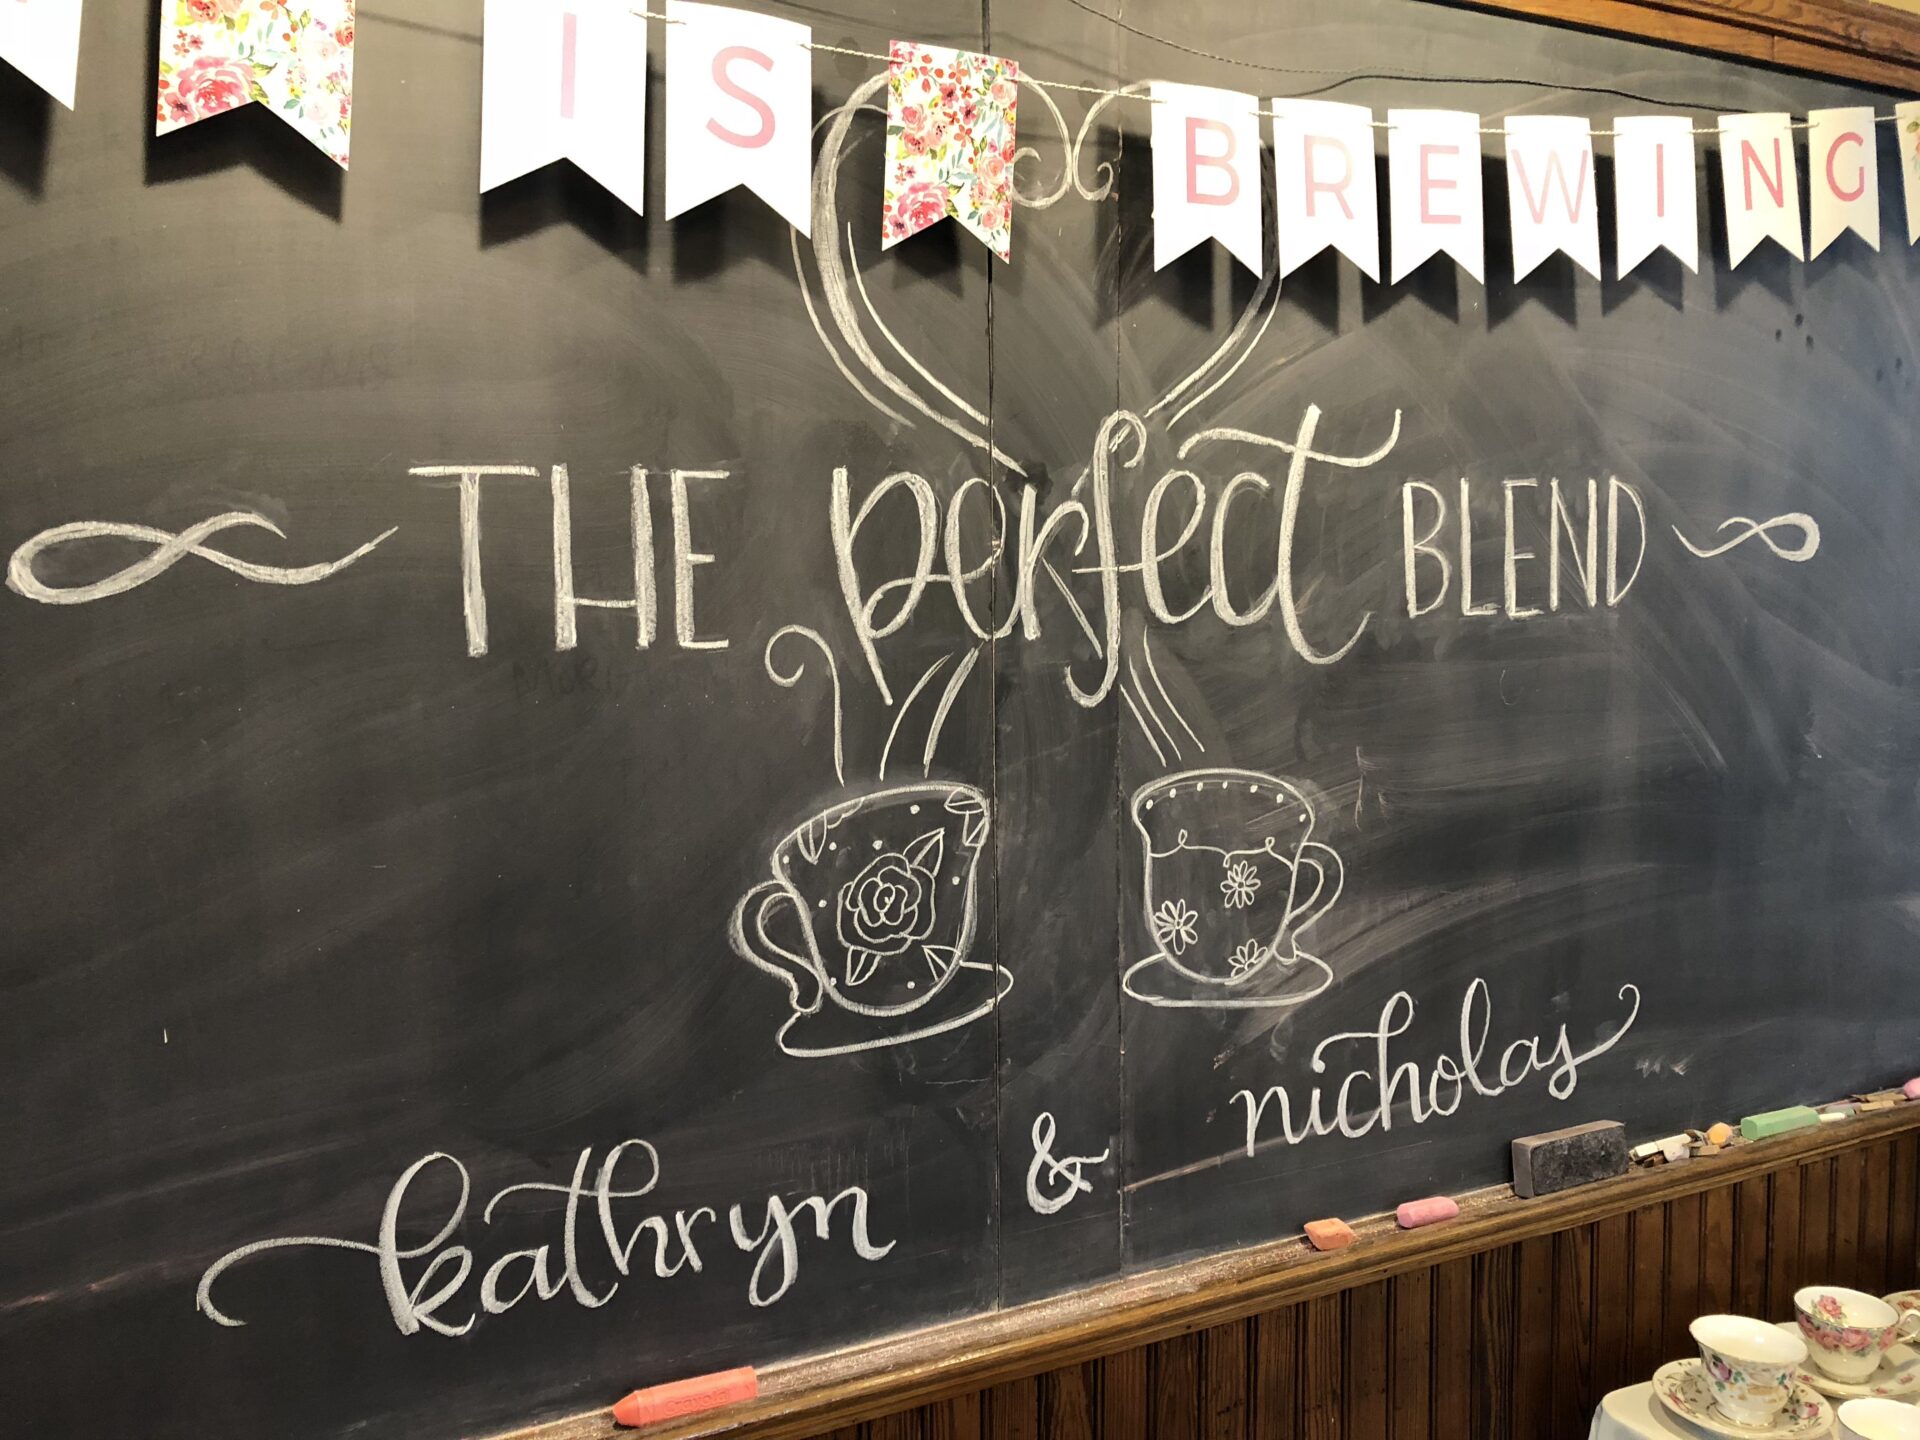 IS BREWING
THE perfect BLEND
kathryn & nicholas
Crayola